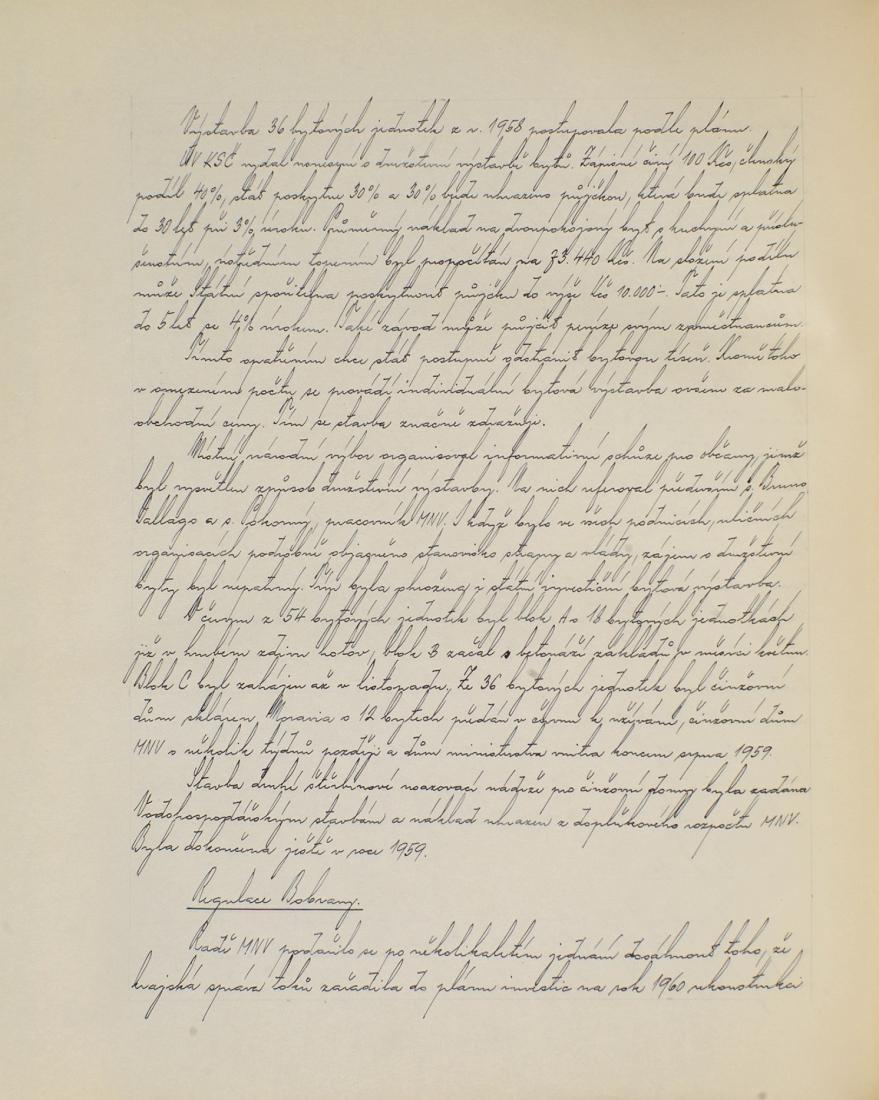 Výstavba 36 bytových jednotek z r. 1958 postupovala podle plánu.
ÚV KSČ vydal usnesení o družstevní výstavbě bytů. Zápisné činí 100 Kčs, členský
podíl 40%, stát poskytne 30% a 30% bude uhrazeno půjčkou, která bude splatna
do 30 let při 3% úroku. Průměrný náklad na dvoupokojový byt s kuchyní a příslu-
šenstvím, ústředním topením byl propočítán na 73.440 Kčs. Na složení podílu
může Státní spořitelna poskytnout půjčku do výše Kčs 10.000-. Tato je splatna
do 5 let se 4% úrokem. Také závod může půjčit peníze svým zaměstnancům.
Tímto opatřením chce stát postupně odstranit bytovou tíseň. Kromě toho
v omezeném počtu se provádí individuální bytová výstavba ovšem za malo-
obchodní ceny. Tím se stavba značně zdražuje.
Místní národní výbor organisoval informativní schůze pro občany, jimž
byl vysvětlen způsob družstevní výstavby. Na nich referoval především s. Bruno
Dallago a s. Pokorný, pracovník MNV. I když bylo ve všech podnicích, uličních
organisacích podrobně objasněno stanovisko strany a vlády, zájem o družstevní
byty byl nepatrný. Tím byla ohrožena i státní investiční bytová výstavba.
V červnu z 54 bytových jednotek byl blok A o 18 bytových jednotkách
již v hrubém zdivu hotov, blok B začal s betonáží základů v měsíci květnu.
Blok C byl zahájen až v listopadu. Ze 36 bytových jednotek byl činžovní
dům skláren Moravia o 12 bytech předán v červnu k užívání, činžovní dům
MNV o několik týdnů později a dům ministerstva vnitra koncem srpna 1959.
Stavba druhé štěrbinové usazovací nádrže pro činžovní domy byla zadána
Vodohospodářským stavbám a náklad uhrazen z doplňkového rozpočtu MNV.
Byla dokončena ještě v roce 1959.
Regulace Bobravy.
Radě MNV podařilo se po několikaletém jednání dosáhnout toho, že
krajská správa toků zařadila do plánu investic na rok 1960 rekonstrukci